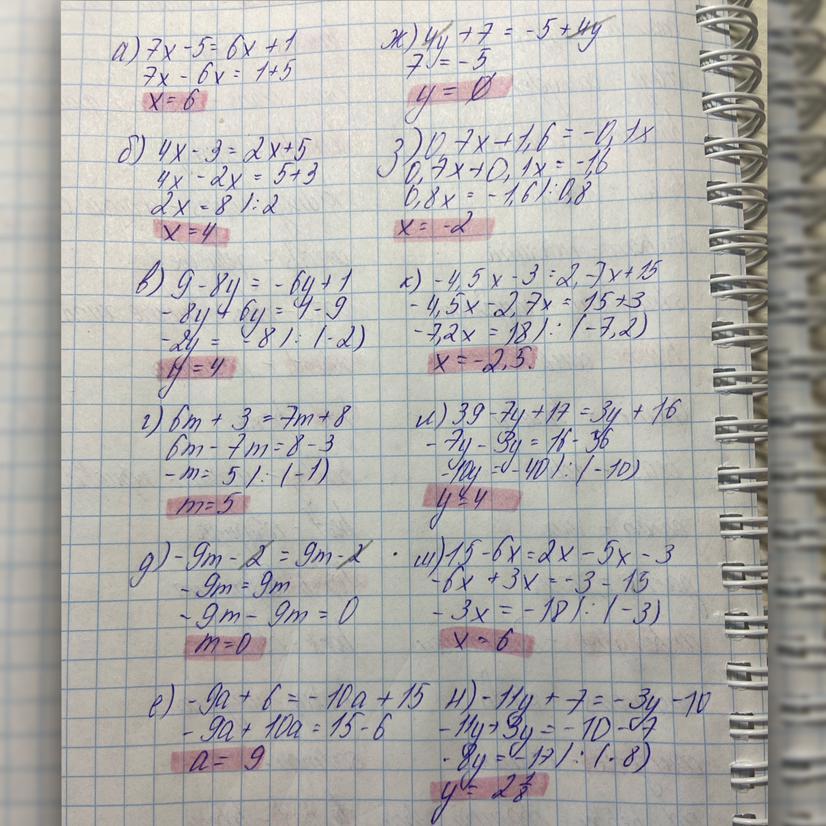 а) 7x - 5 = 6x + 1
7x - 6x = 1+5
x = 6
б) 4x - 3 = 2x+5
4x - 2x = 5+3
2x = 8 | : 2
x = 4
в) 9 - 8y = -6y + 1
- 8y + 6y = 1 - 9
-2y = -8 | : (-2)
y = 4
г) 6m + 3 = 7m + 8
6m - 7m = 8 - 3
- m = 5 | : (-1)
m = 5
д) -9m - 2 = 9m - 2
- 9m = 9m
- 9m - 9m = 0
m = 0
е) - 9a + 6 = - 10a + 15
- 9a + 10a = 15 - 6
a = 9
ж) 4y + 7 = -5 + 4y
7 = -5
y = Ø
з) 0,7x + 1,6 = -0,1x
0,7x + 0,1x = -1,6
0,8x = -1,6 | : 0,8
x = -2
к) -4,5x - 3 = 2,7x + 15
-4,5x - 2,7x = 15 + 3
-7,2x = 18 | : (-7,2)
x = -2,5.
л) 39 - 7y + 17 = 3y + 16
- 7y - 3y = 16 - 56
-10y = -40 | : (-10)
y = 4
м) 15 - 6x = 2x - 5x - 3
-6x + 3x = -3 - 15
- 3x = -18 | : (-3)
x = 6
н) -11y + 7 = -3y - 10
-11y + 3y = -10 - 7
- 8y = -17 | : (-8)
y = 2 1/8